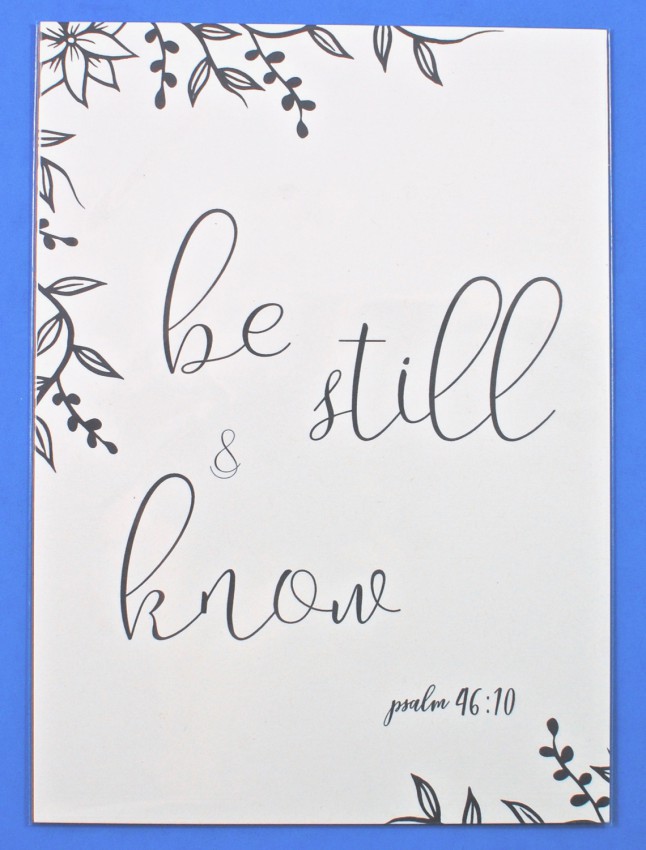 be
still
&
know
psalm 46:10